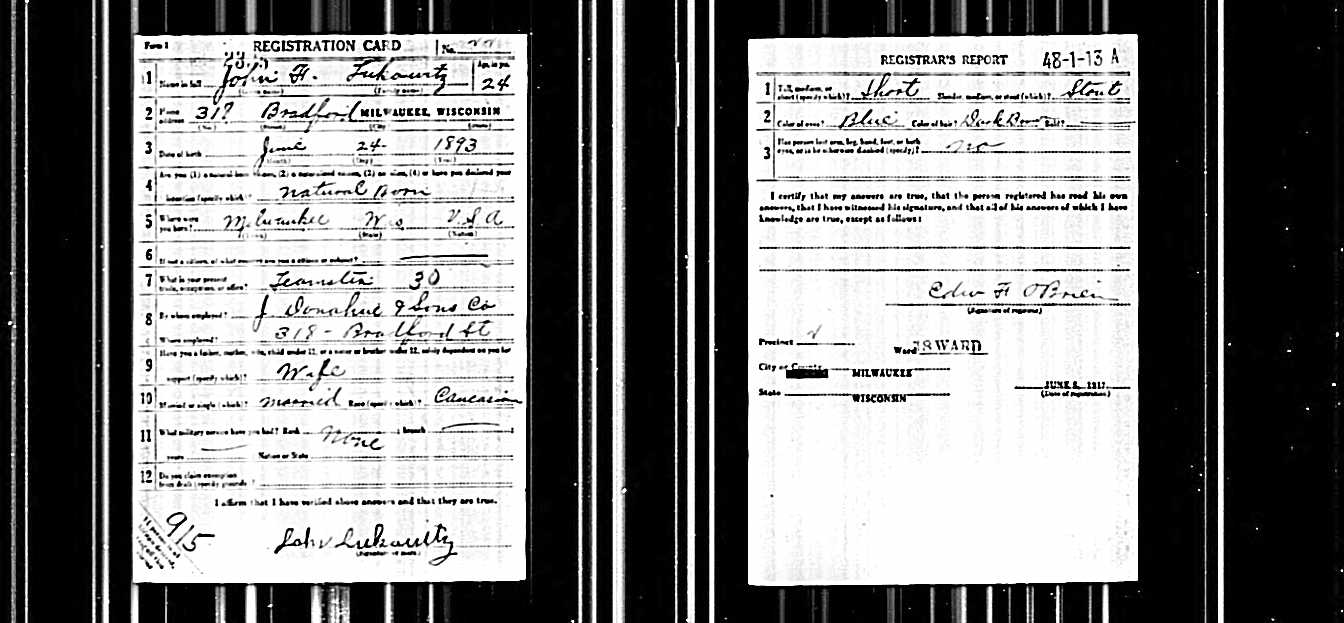 Form 1 REGISTRATION CARD No.
1 Name in full John F. Lukowitz Age, in yrs. 24
(Given name) (Family name)
2 Home address 317 Bradford MILWAUKEE, WISCONSIN
(No.) (Street) (City) (State)
3 Date of birth June 24 1893
(Month) (Day) (Year)
4 Are you (1) a natural-born citizen, (2) a naturalized citizen, (3) an alien, (4) or have you declared your
intention (specify which)? natural Born
5 Where were you born? Milwaukee Wis U.S.A
(Town) (State) (Nation)
6 If not a citizen, of what country are you a citizen or subject?
7 What is your present trade, occupation, or office? Teamster 30
8 By whom employed? J Donahue & Sons Co
Where employed? 318 - Bradford St
9 Have you a father, mother, wife, child under 12, or a sister or brother under 12, solely dependent on you for
support (specify which)? Wife
10 Married or single (which)? married Race (specify which)? Caucasian
11 What military service have you had? Rank None ; branch ;
years Nation or State
12 Do you claim exemption from draft (specify grounds)?
I affirm that I have verified above answers and that they are true.
9/5
John Lukowitz
(Signature or mark)
REGISTRAR'S REPORT 48-1-13 A
1 Tall, medium, or short (specify which)? Short Slender, medium, or stout (which)? Stout
2 Color of eyes? Blue Color of hair? Dark Brown Bald?
3 Has person lost arm, leg, hand, foot, or both eyes, or is he otherwise disabled (specify)? no
I certify that my answers are true, that the person registered has read his own
answers, that I have witnessed his signature, and that all of his answers of which I have
knowledge are true, except as follows:
Edw F O'Brien
(Signature of registrar)
Precinct 2
Ward 18 WARD
City or County MILWAUKEE
State WISCONSIN
JUNE 5, 1917
(Date of registration)